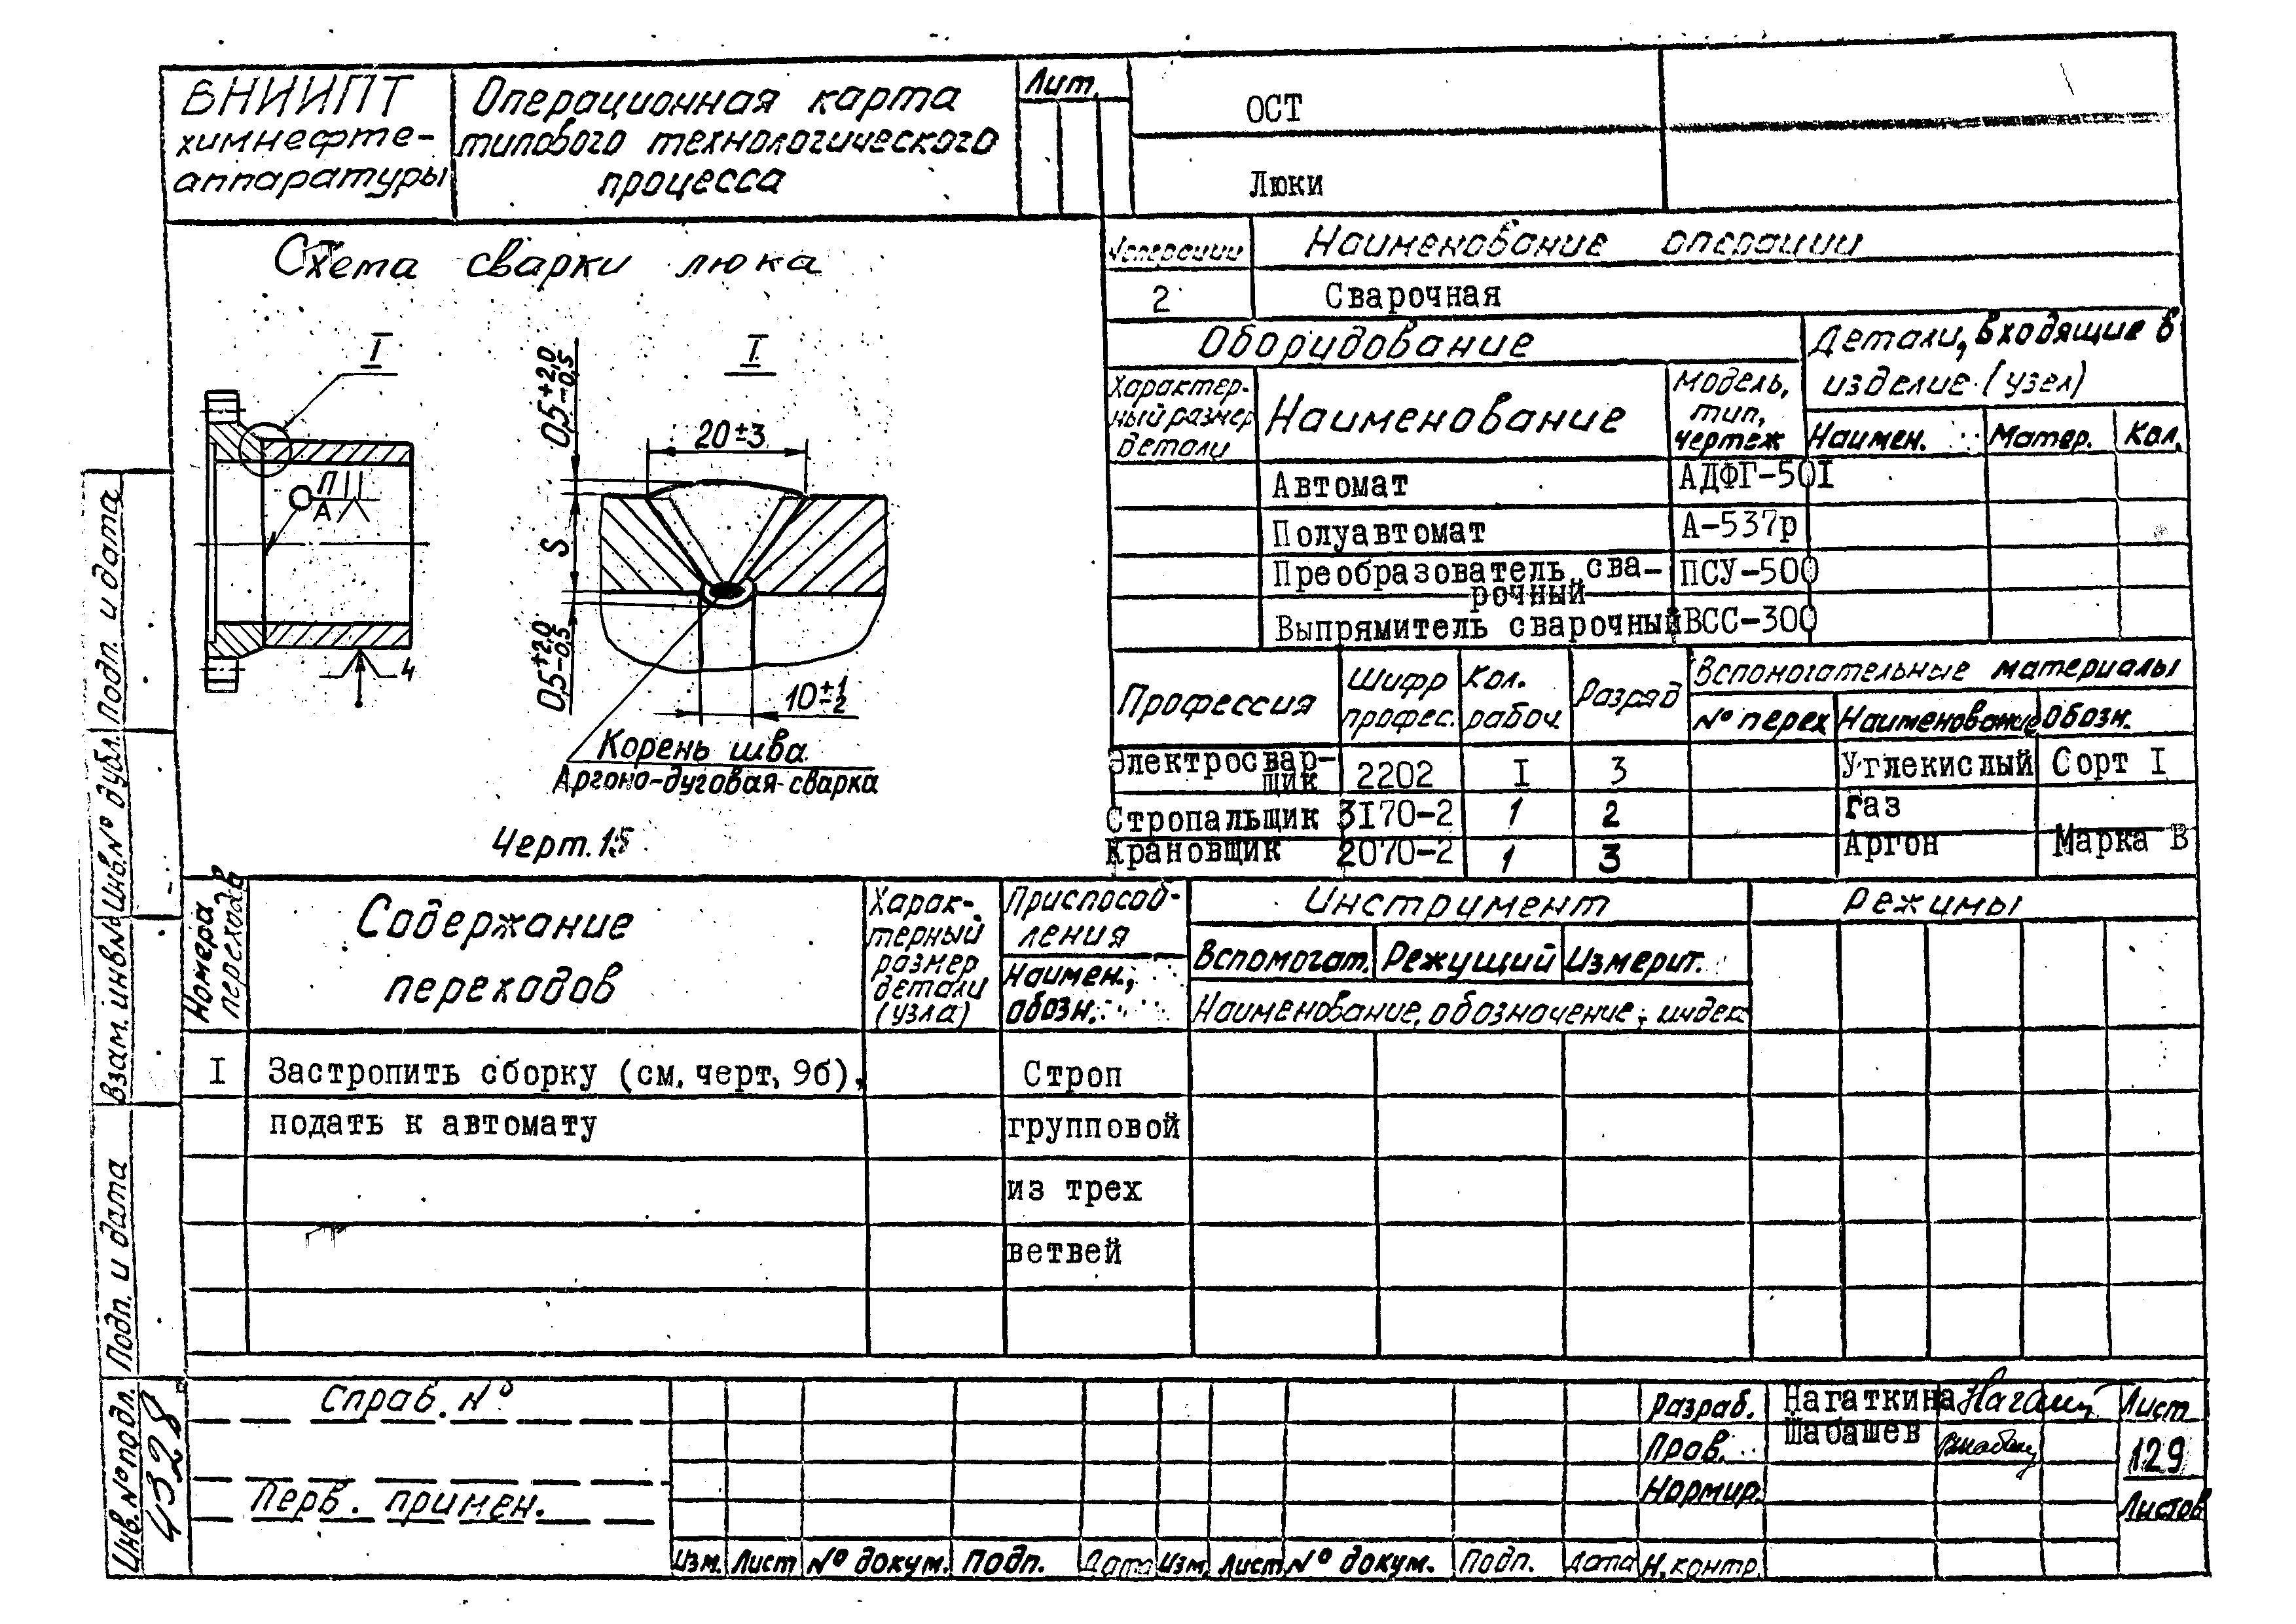 ВНИИПТ
химнефте-
аппаратуры
Операционная карта
типового технологического
процесса
Лит.
ОСТ
Люки
Схема сварки люка
I
I
0,5 +2,0 -0,5
20±3
П
А
S
0,5 +2,0 -0,5
4
10 +1 -2
Корень шва
Аргоно-дуговая сварка
Черт. 15
№ операции
Наименование операции
2
Сварочная
Оборудование
Детали, входящие в
изделие (узел)
Характер-
ный размер
детали
Наименование
Модель,
тип,
чертеж
Наимен.
Матер.
Кол.
Автомат
АДФГ-50I
Полуавтомат
А-537р
Преобразователь сва-
рочный
ПСУ-500
Выпрямитель сварочный
ВСС-300
Профессия
Шифр
профес.
Кол.
рабоч.
Разряд
Вспомогательные материалы
№ перех
Наименование
Обозн.
Электросвар-
щик
2202
I
3
Углекислый
Сорт I
Стропальщик
3I70-2
1
2
газ
Крановщик
2070-2
1
3
Аргон
Марка В
Номера
переходов
Содержание
переходов
Харак-
терный
размер
детали
(узла)
Приспособ-
ления
Наимен.,
обозн.
Инструмент
Вспомогат.
Режущий
Измерит.
Наименование, обозначение, индек
Режимы
I
Застропить сборку (см. черт, 9б),
Строп
подать к автомату
групповой
из трех
ветвей
Справ. №
Перв. примен.
Изм.
Лист
№ докум.
Подп.
Дата
Изм.
Лист
№ докум.
Подп.
Дата
Разраб.
Нагаткина
Пров.
Шабашев
Нормир.
Н. контр.
Лист
129
Листов
Подп. и дата
Инв. № дубл.
Взам. инв. №
Подп. и дата
Инв. № подл.
4328